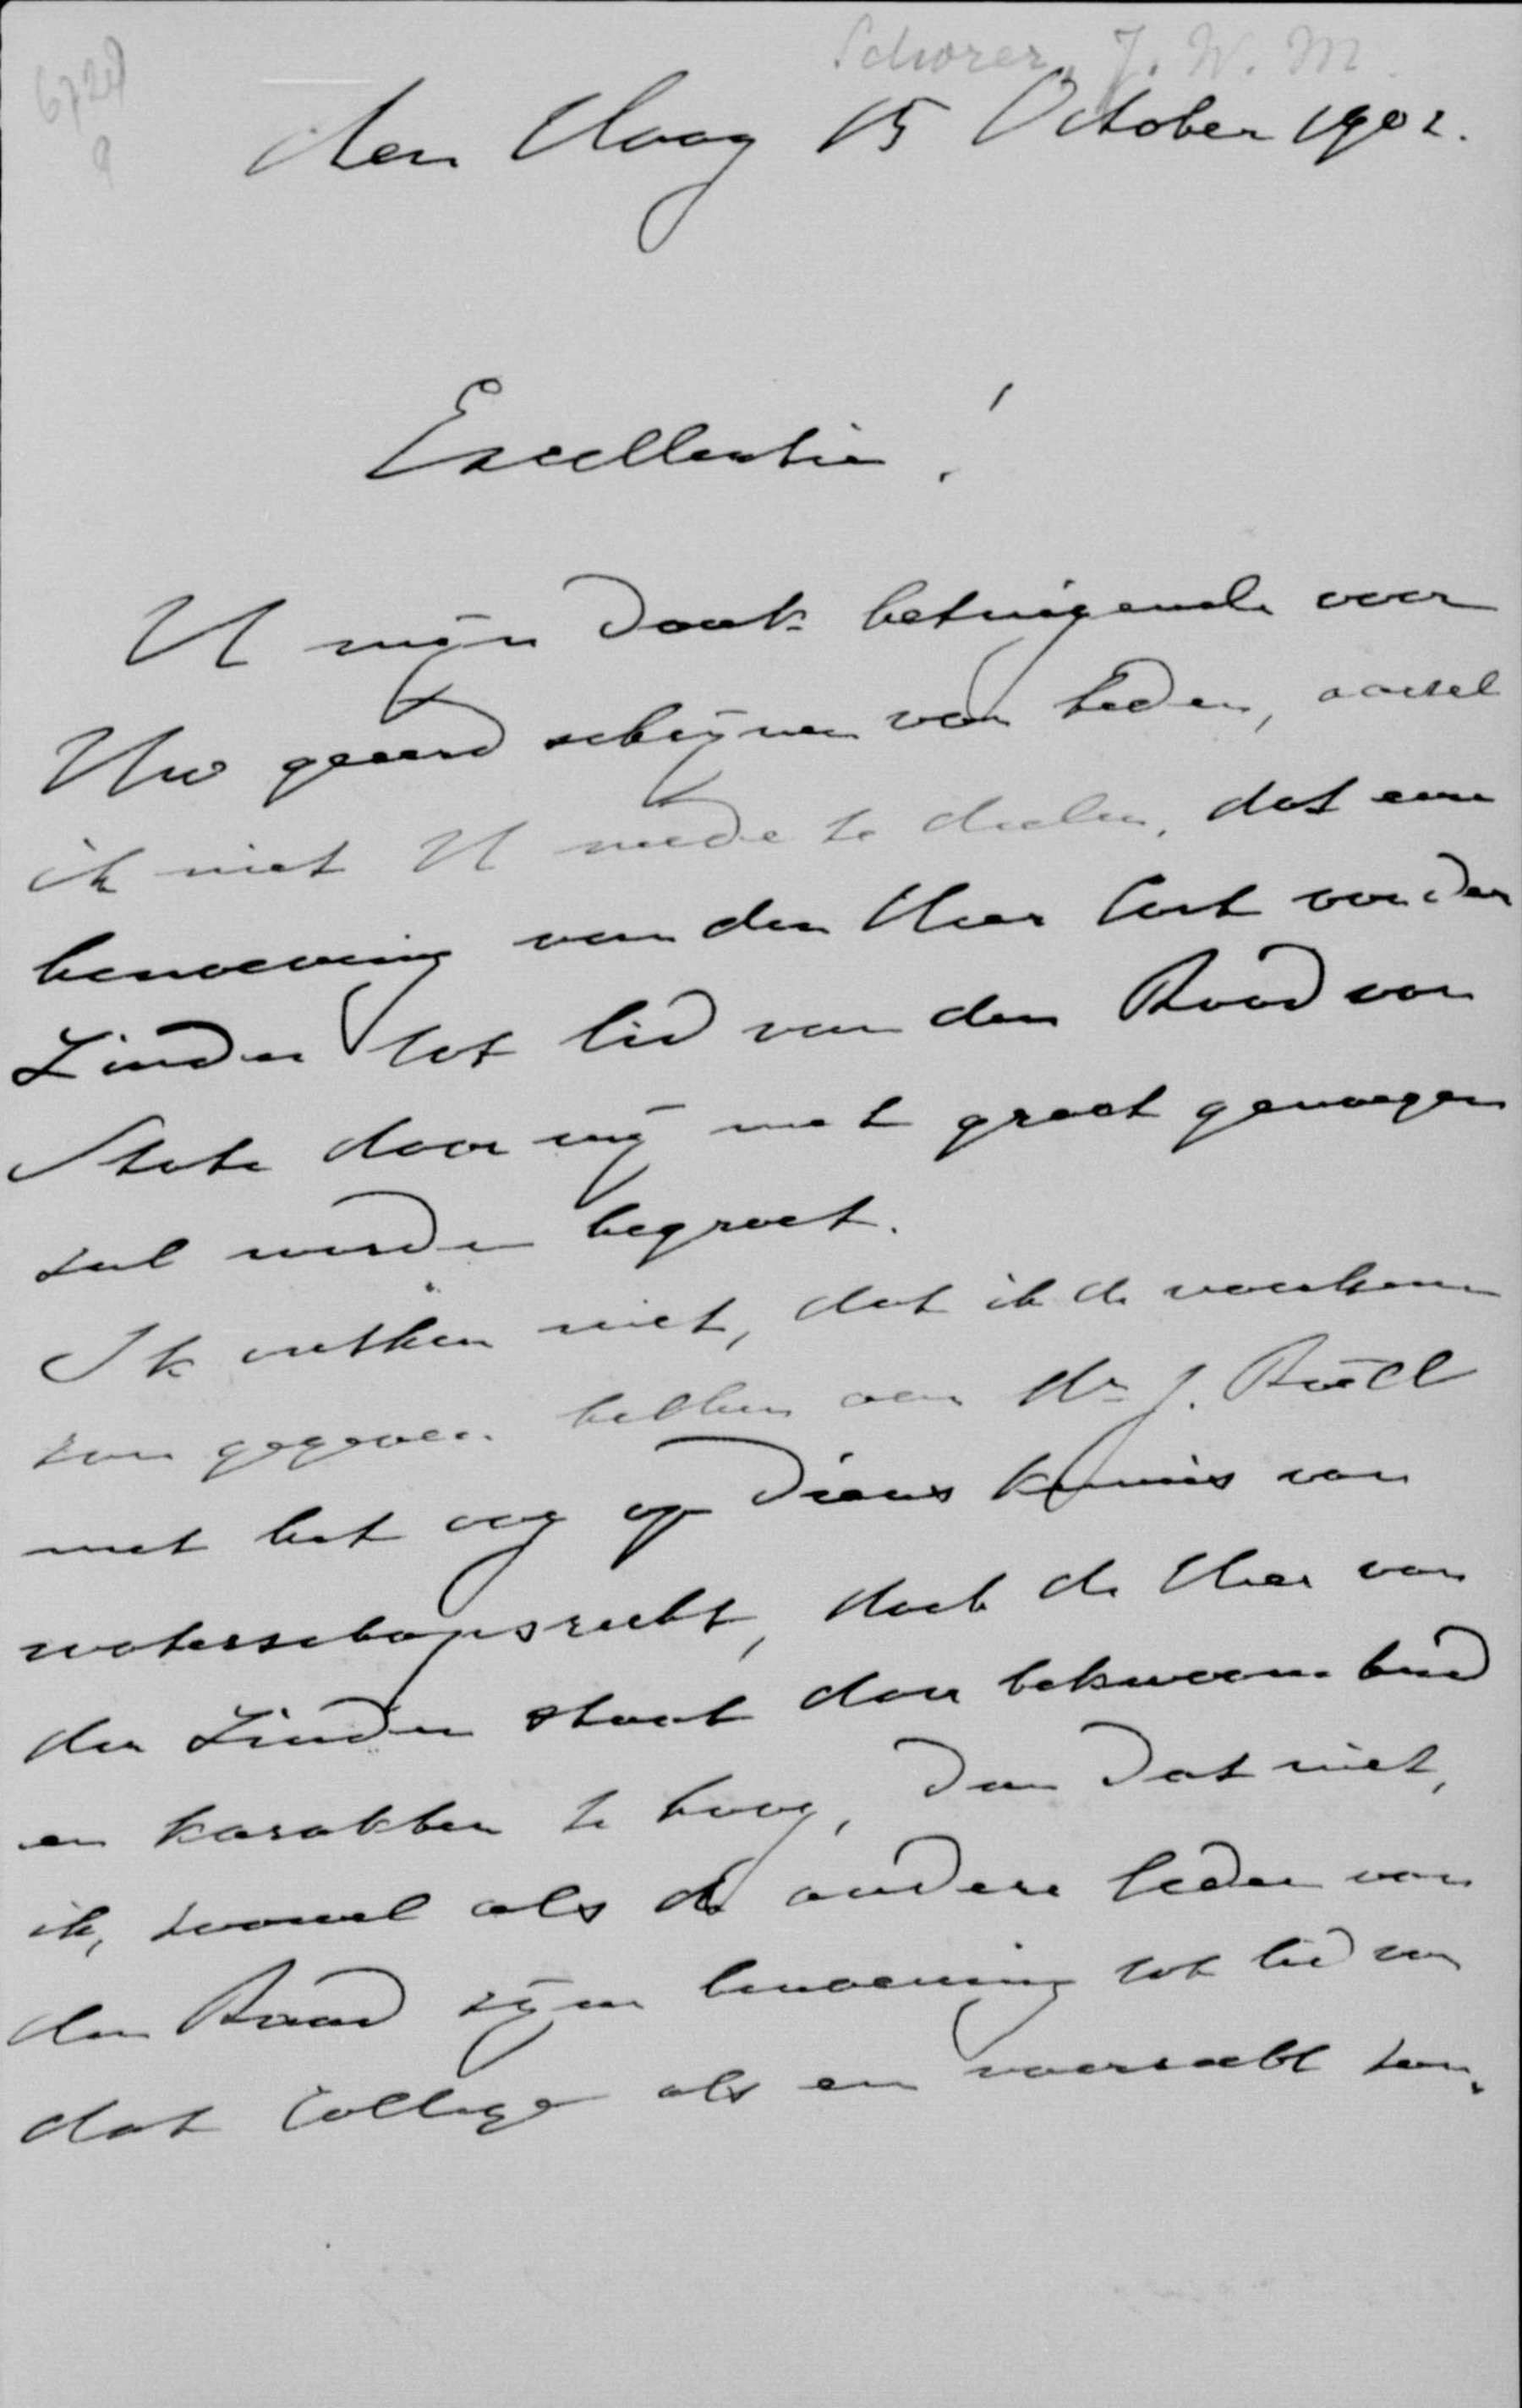 Schorer, J. W. M.
den Haag 15 October 1902.
Excellentie!
U mijn dank betuigende voor
Uw geëerd schrijven van heden, aarzel
ik niet U mede te deelen, dat eene
benoeming van den Heer Cort van der
Linden tot lid van den Raad van
State door mij met groot genoegen
zal worden begroet.
Ik ontken niet, dat ik de voorkeur
zou gegeven hebben aan Mr J. Roëll
met het oog op diens kennis van
waterschapsrecht, doch de Heer van
der Linden staat door bekwaamheid
en karakter te hoog, dan dat niet,
ik, zoowel als de andere leden van
den Raad zijne benoeming tot lid van
dat College als een voorrecht zou,